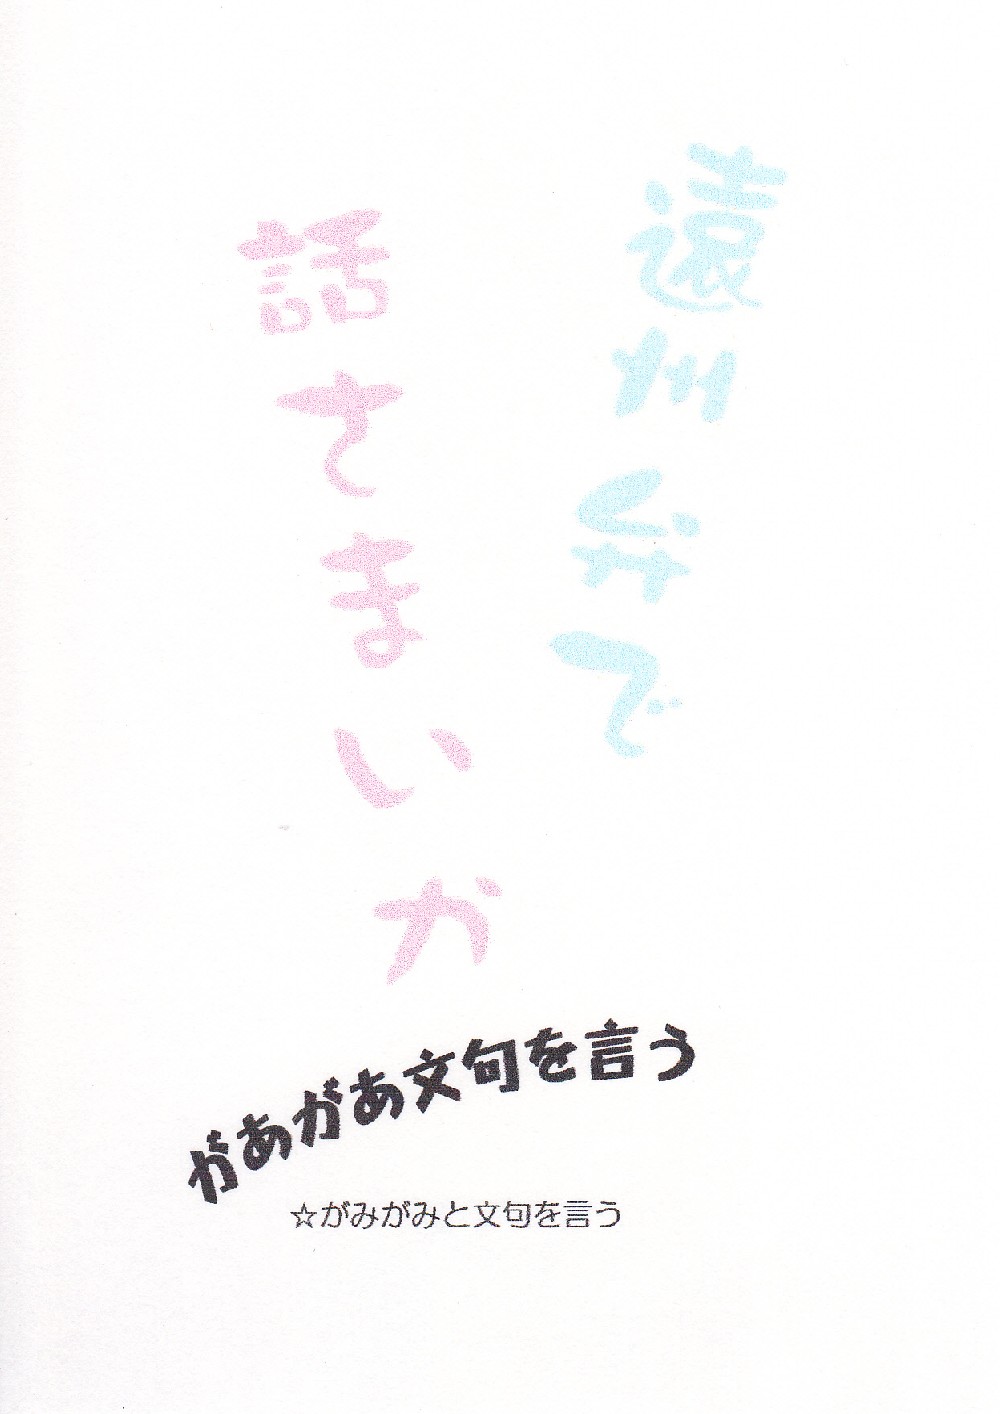 遠州弁で
話さまいか
があがあ文句を言う
☆がみがみと文句を言う